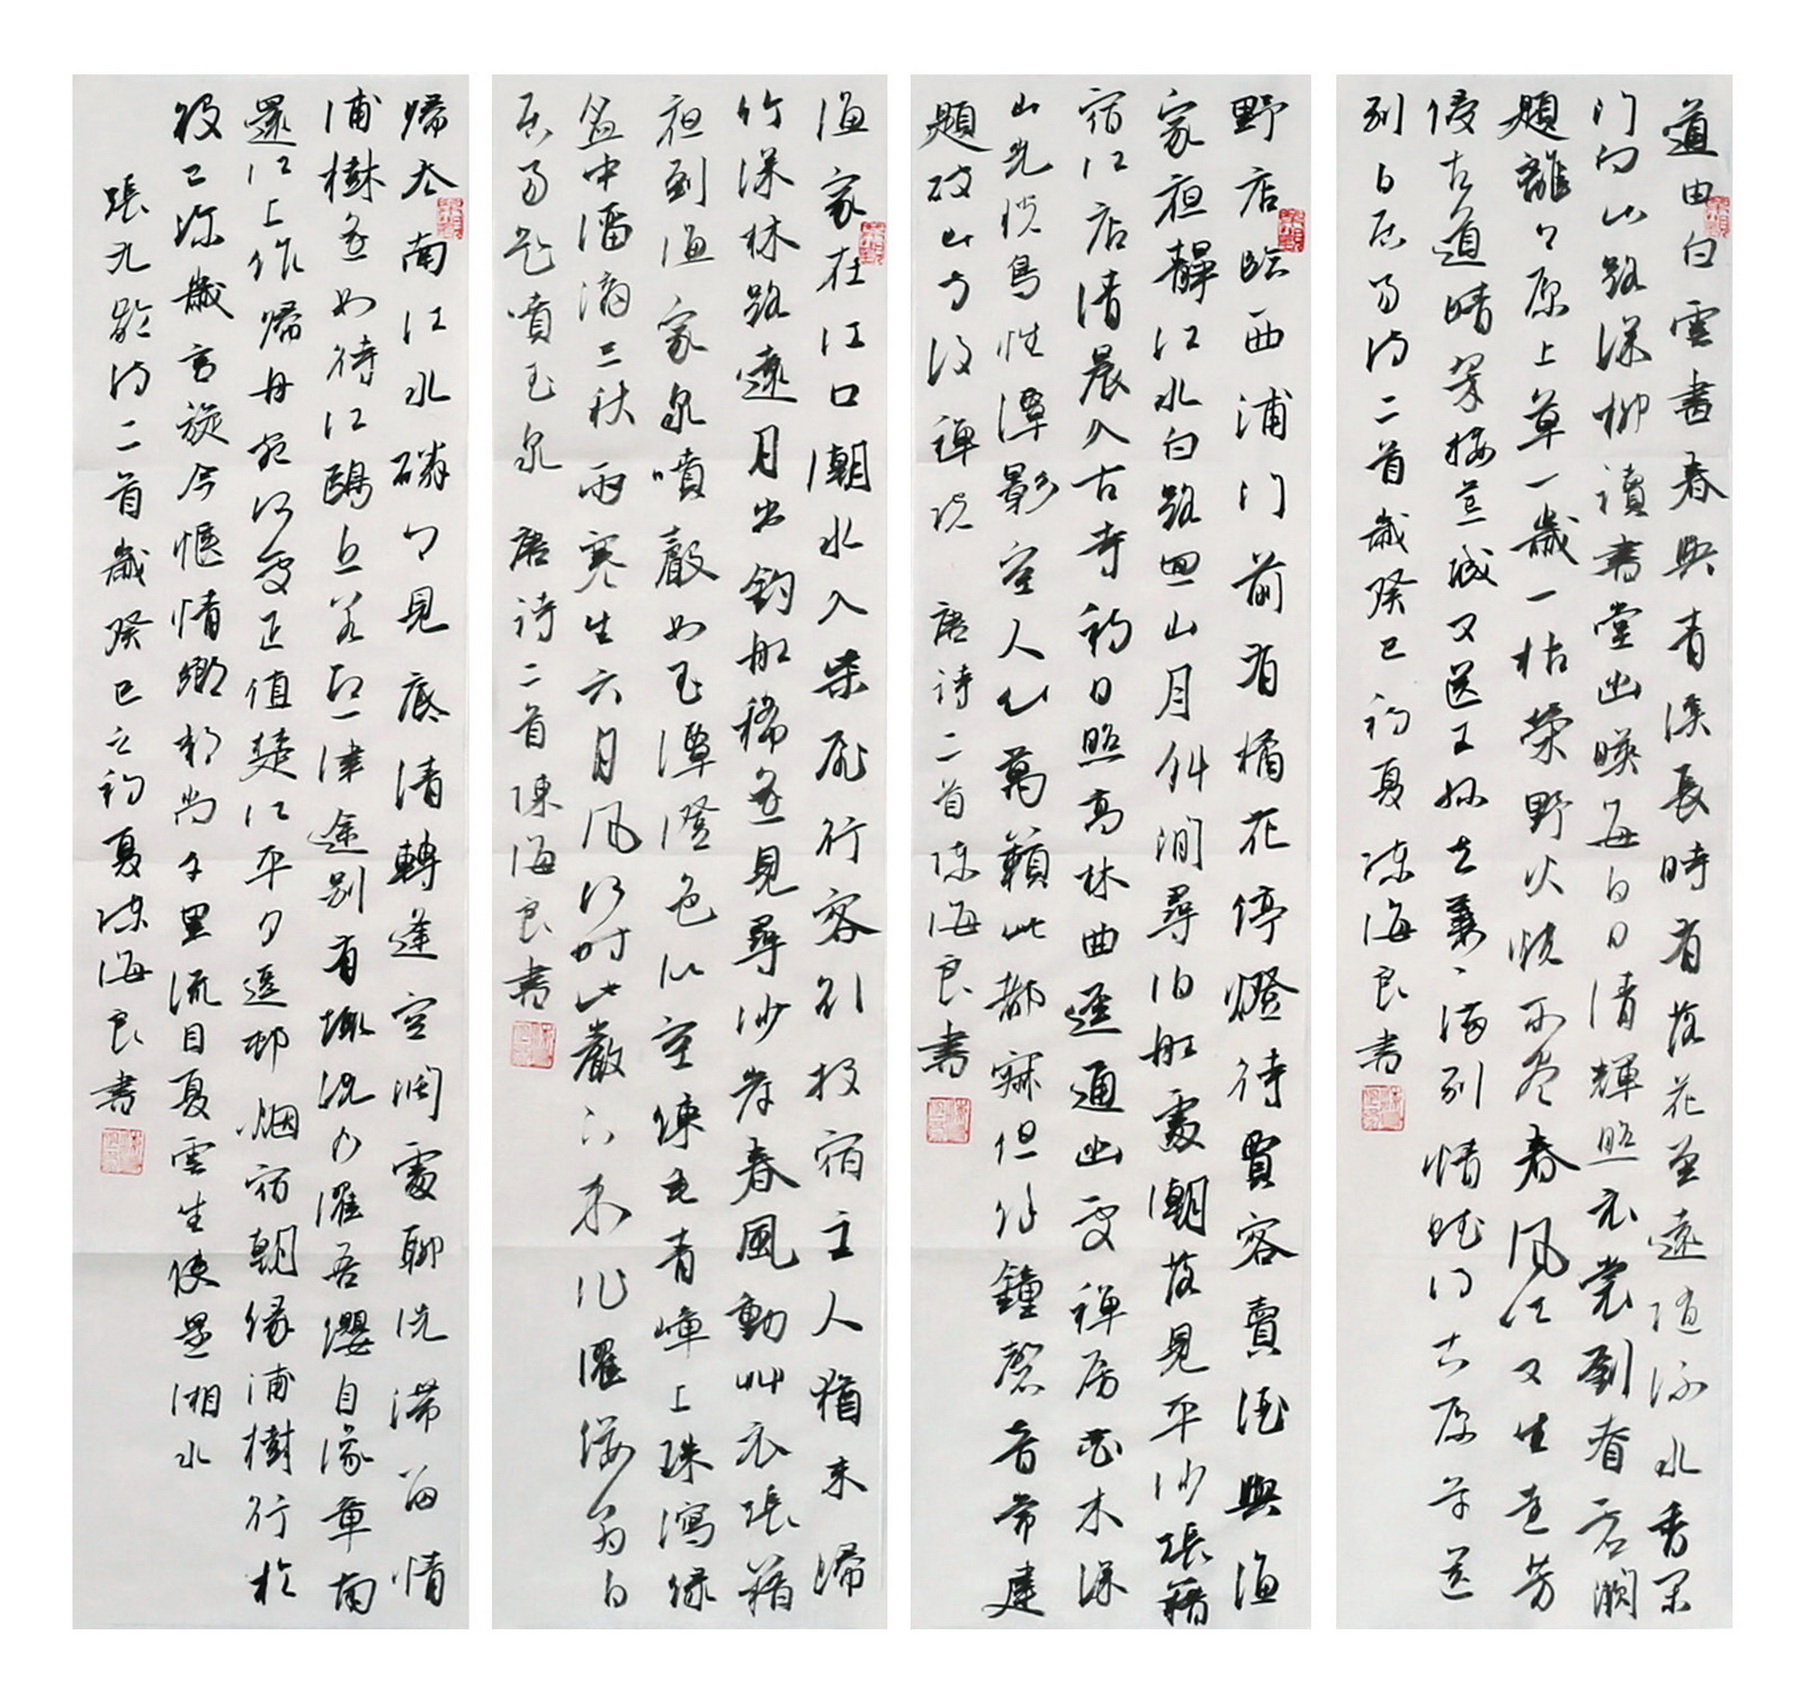 道由白雲書春與青溪長時有落花至遠隨流水香閑
门向山路深柳讀書堂幽映每白日清輝照衣裳劉眘虛闕
題離離原上草一歲一枯榮野火燒不盡春风吹又生远芳
侵古道晴翠接荒城又送王孙去萋萋满别情賦得古原草送
别白居易诗二首歲癸巳初夏陈海良書
野店臨西浦门前有橘花停燈待賈客賣酒與渔
家夜靜江水白路迴山月斜閒尋泊船處潮落見平沙張籍
宿江店清晨入古寺初日照高林曲逕通幽处禅房花木深
山光悦鳥性潭影空人心萬籟此都寂但餘鐘磬音常建
題破山寺後禅院 唐詩二首陈海良書
渔家在江口潮水入柴扉行客欲投宿主人猶未歸
竹深林路遠月出釣船稀遥見尋沙岸春風動艸衣張籍
夜到渔家泉噴巖如玉潭澄色似空練垂青嶂上珠瀉绿
盆中溜滴三秋雨寒生六月风何时此巖下来作濯缨翁白
居易题噴玉泉 唐詩二首陳海良書
歸去南江水磷磷见底清轉逢空闊處聊洗滞留情
浦樹遥如待江鷗近若迎津途别有趣况乃濯吾纓自豫章南
還江上作歸舟宛何处正值楚江平夕逗邨烟宿朝缘浦樹行於
役已弥歲言旋今愜情鄉郊尚千里流目夏雲生使還湘水
張九龄诗二首歲癸巳之初夏陈海良書